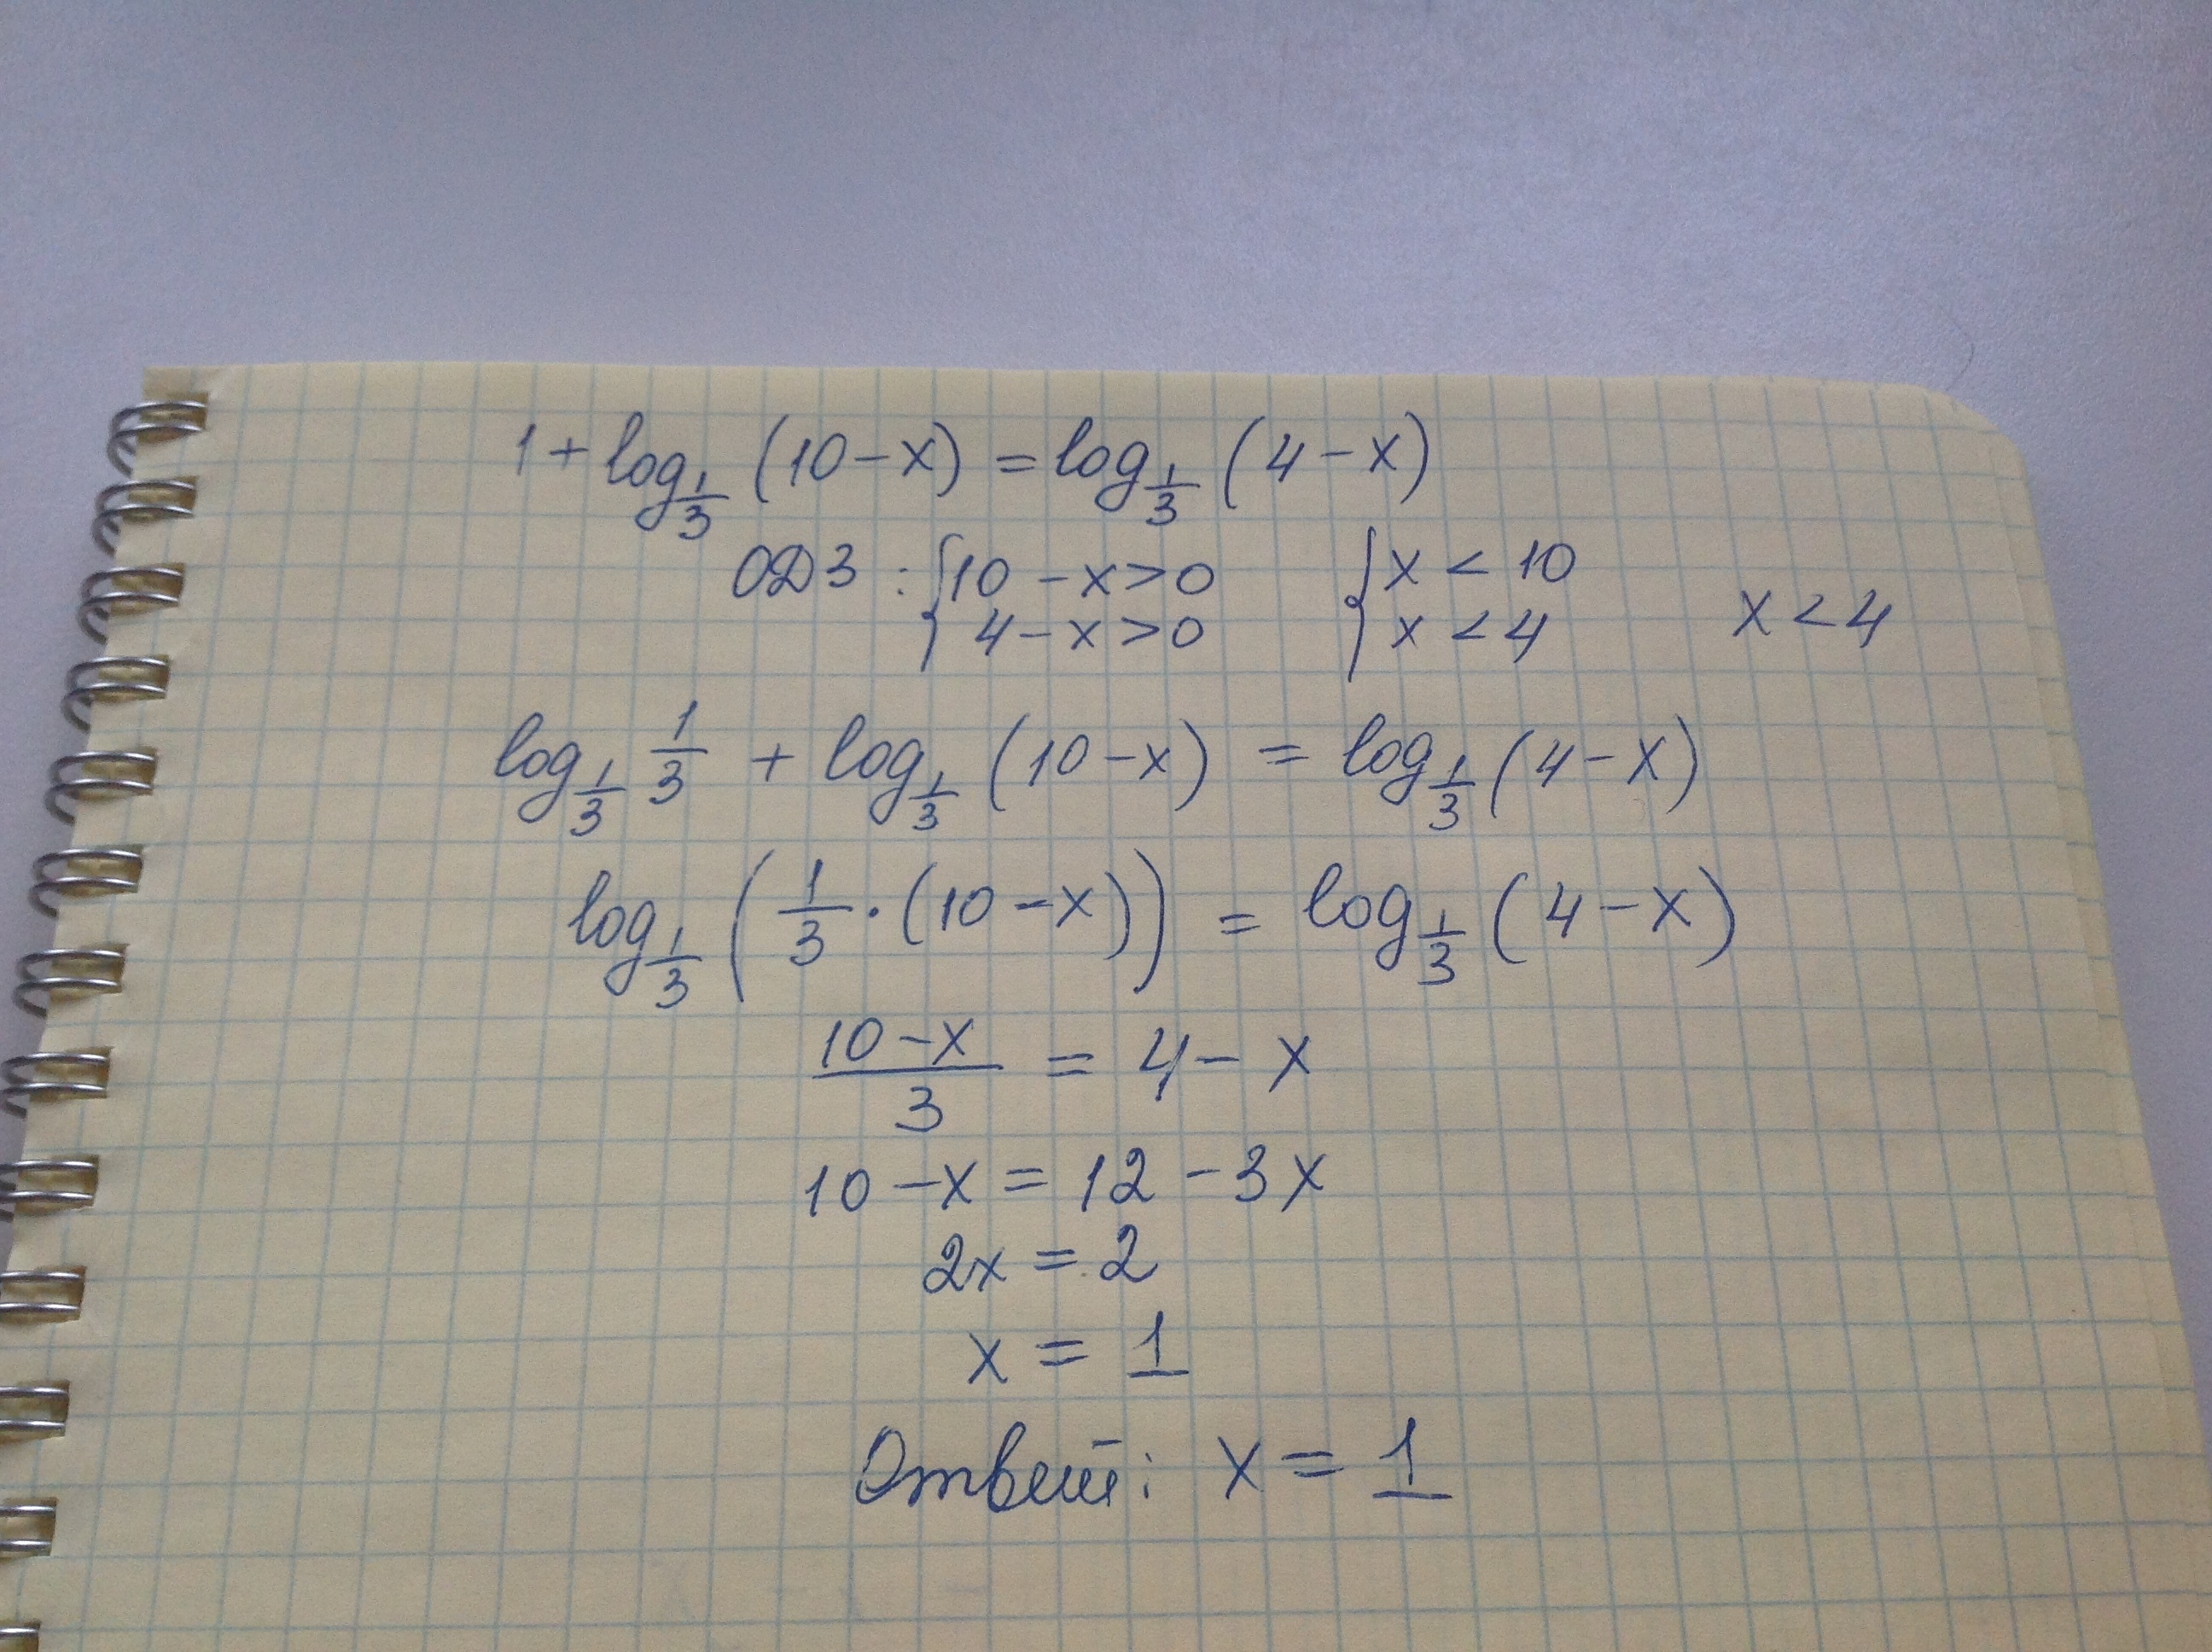 1 + log_{1/3} (10 - x) = log_{1/3} (4 - x)
ОДЗ : { 10 - x > 0 { x < 10
4 - x > 0 x < 4 x < 4
log_{1/3} 1/3 + log_{1/3} (10 - x) = log_{1/3} (4 - x)
log_{1/3} (1/3 · (10 - x)) = log_{1/3} (4 - x)
(10 - x)/3 = 4 - x
10 - x = 12 - 3x
2x = 2
x = 1
Ответ: x = 1